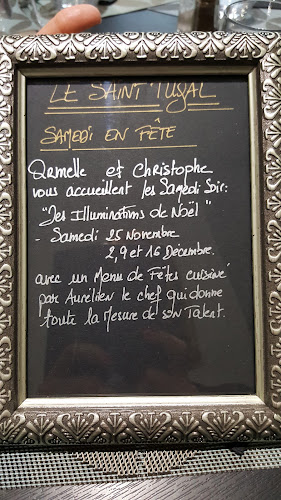 LE SAINT TUGAL
SAMEDI EN FÊTE
Armelle et Christophe
vous accueillent les Samedi Soir:
"Les Illuminations de Noël"
- Samedi 25 Novembre
2, 9 et 16 Décembre.
avec un Menu de Fêtes cuisiné
par Aurélien le chef qui donne
toute la Mesure de son Talent.